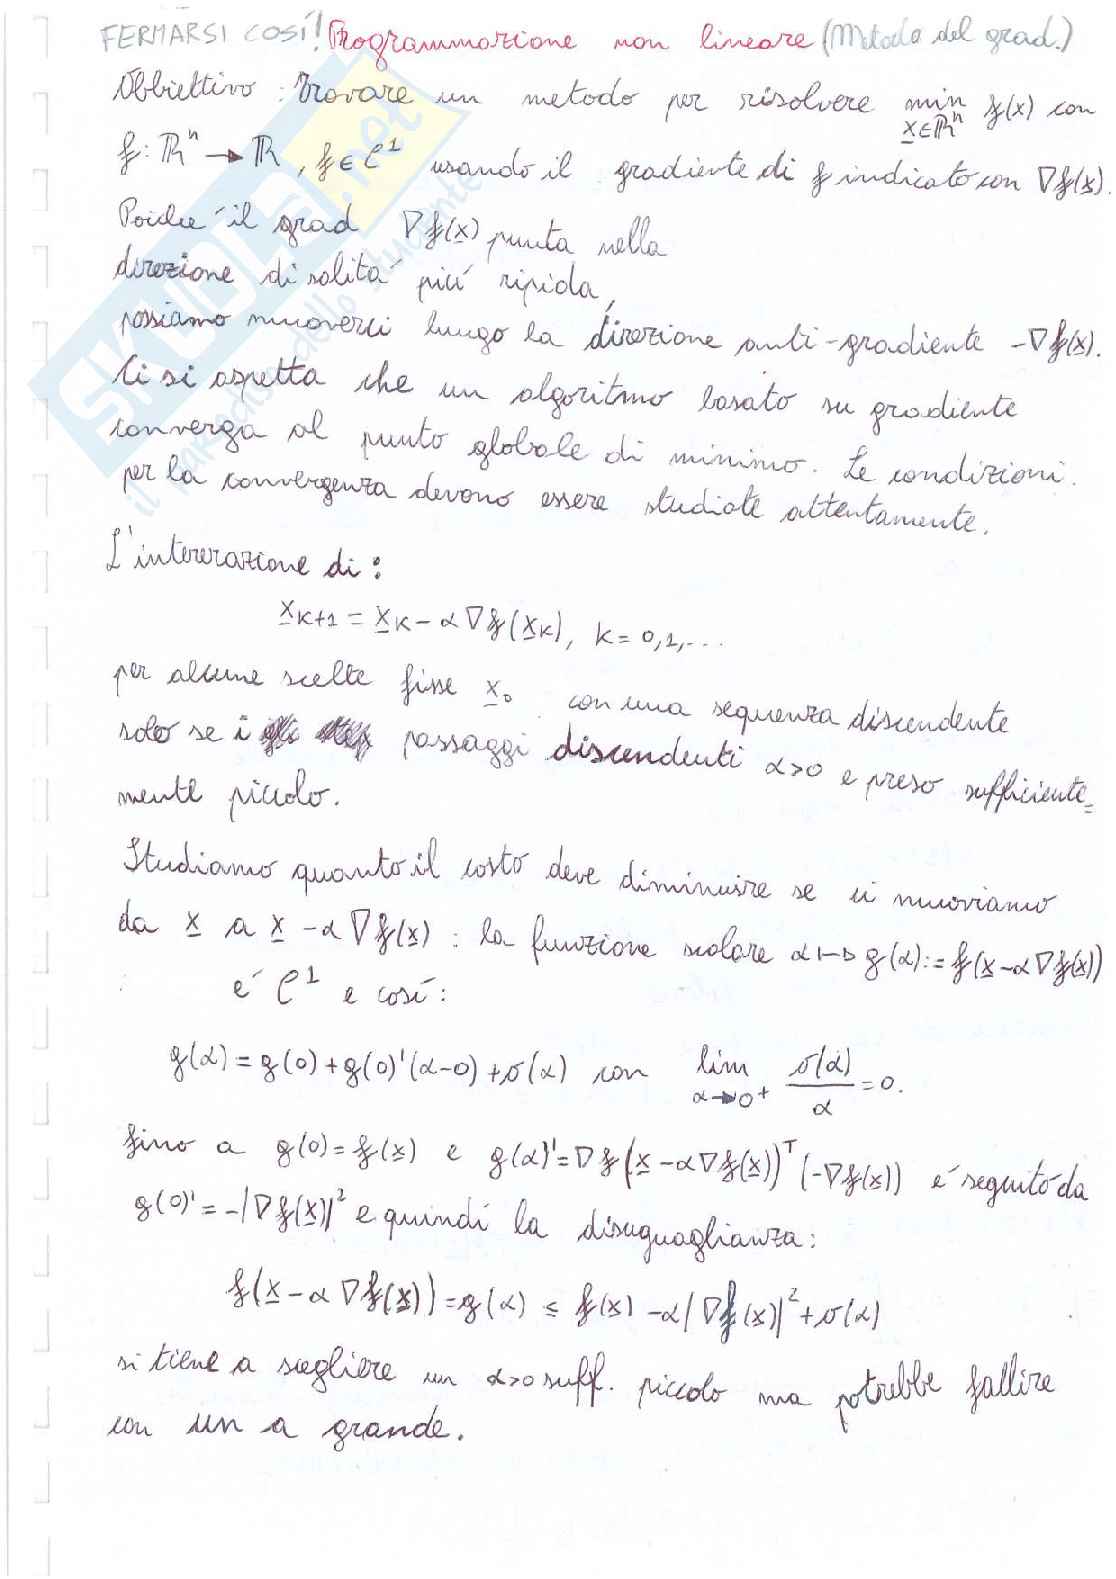 FERMARSI COSÍ! Programmazione non lineare (Metodo del grad.)
Obbiettivo: Trovare un metodo per risolvere min f(x) con
x∈ℝⁿ
f: ℝⁿ → ℝ, f ∈ C¹ usando il gradiente di f indicato con ∇f(x).
Poiché il grad ∇f(x) punta nella
direzione di salitá piú ripida,
possiamo muoverci lungo la direzione anti-gradiente -∇f(x).
Ci si aspetta che un algoritmo basato su gradiente
converga al punto globale di minimo. Le condizioni
per la convergenza devono essere studiate attentamente.
L'intererazione di:
x_{K+1} = x_K - α∇f(x_K), K = 0,1,...
per alcune scelte fisse x₀ con una sequenza discendente
solo se i passaggi discendenti α>0 e preso sufficiente=
mente piccolo.
Studiamo quanto il costo deve diminuire se ci muoviamo
da x a x - α∇f(x): la funzione scalare α ↦ g(α) := f(x - α∇f(x))
é C¹ e cosí:
g(α) = g(0) + g(0)'(α-0) + σ(α) con lim_{α→0⁺} σ(α)/α = 0.
fino a g(0) = f(x) e g(α)' = ∇f(x - α∇f(x))ᵀ(-∇f(x)) é seguito da
g(0)' = -|∇f(x)|² e quindi la disuguaglianza:
f(x - α∇f(x)) = g(α) ≤ f(x) - α|∇f(x)|² + σ(α)
si tiene a scegliere un α>0 suff. piccolo ma potrebbe fallire
con un a grande.
SKUOLA.net
il paradiso dello studente